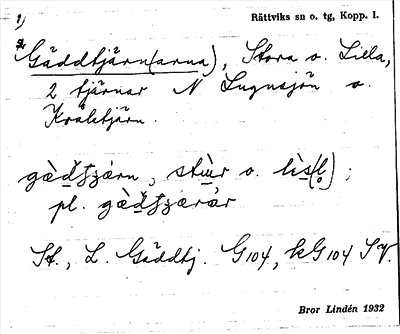 1) Rättviks sn o. tg, Kopp. l.
Gäddtjärn(arna), Stora o. Lilla,
2 tjärnar N Lugnsjön o.
Kråktjärn.
gàd̲ʃʒärn, stùr o. lìs(l̥) ;
pl. gàd̲ʃʒärár
St., L. Gäddtj. G104, kG104 Sv.
Bror Lindén 1932